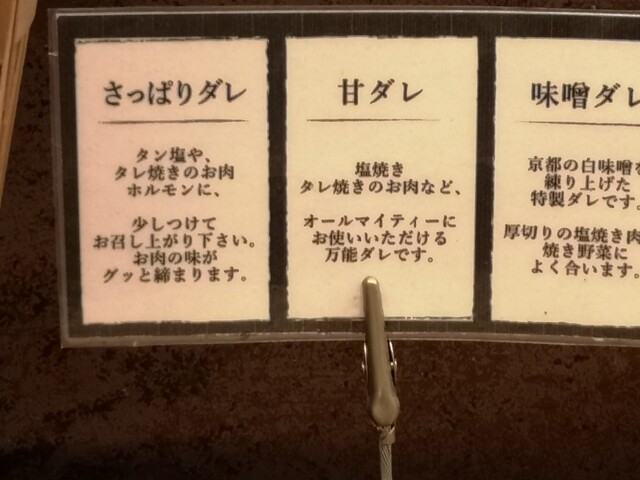 さっぱりダレ
タン塩や、
タレ焼きのお肉
ホルモンに、
少しつけて
お召し上がり下さい。
お肉の味が
グッと締まります。
甘ダレ
塩焼き
タレ焼きのお肉など、
オールマイティーに
お使いいただける
万能ダレです。
味噌ダレ
京都の白味噌を
練り上げた
特製ダレです。
厚切りの塩焼き肉
焼き野菜に
よく合います。